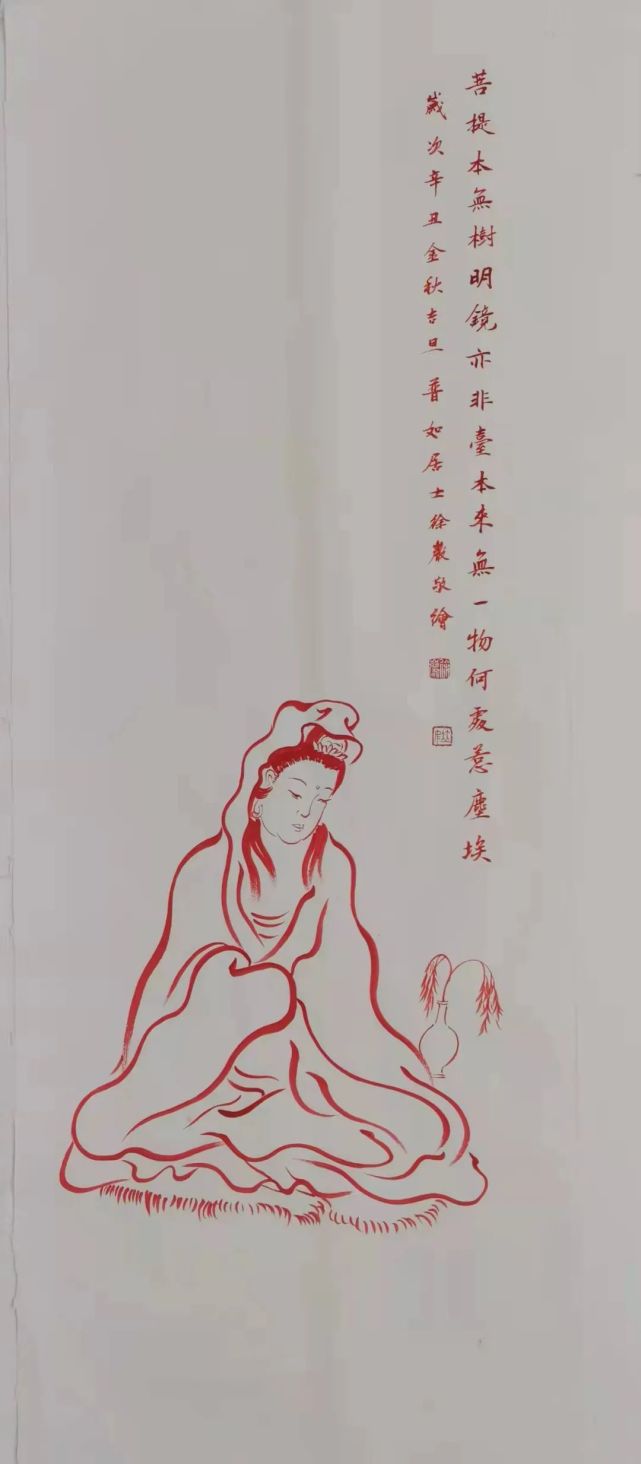 菩提本無樹明鏡亦非臺本來無一物何處惹塵埃
歲次辛丑金秋吉旦普如居士徐嚴敬繪